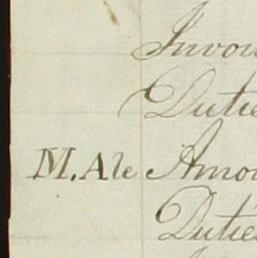 Invoi
Dutie
M. Ale Amou
Dutie